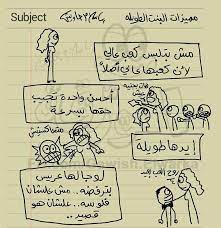 Subject
مميزات البنت الطويلة
مش بتلبس كعب عالي
لأن كعبها عالي أصلاً
أحسن واحدة تجيب
حقها بسرعة
إيدها طويلة
لو جالها عريس
بترفضه.. مش علشان
فلوسه.. علشان هو
قصير..